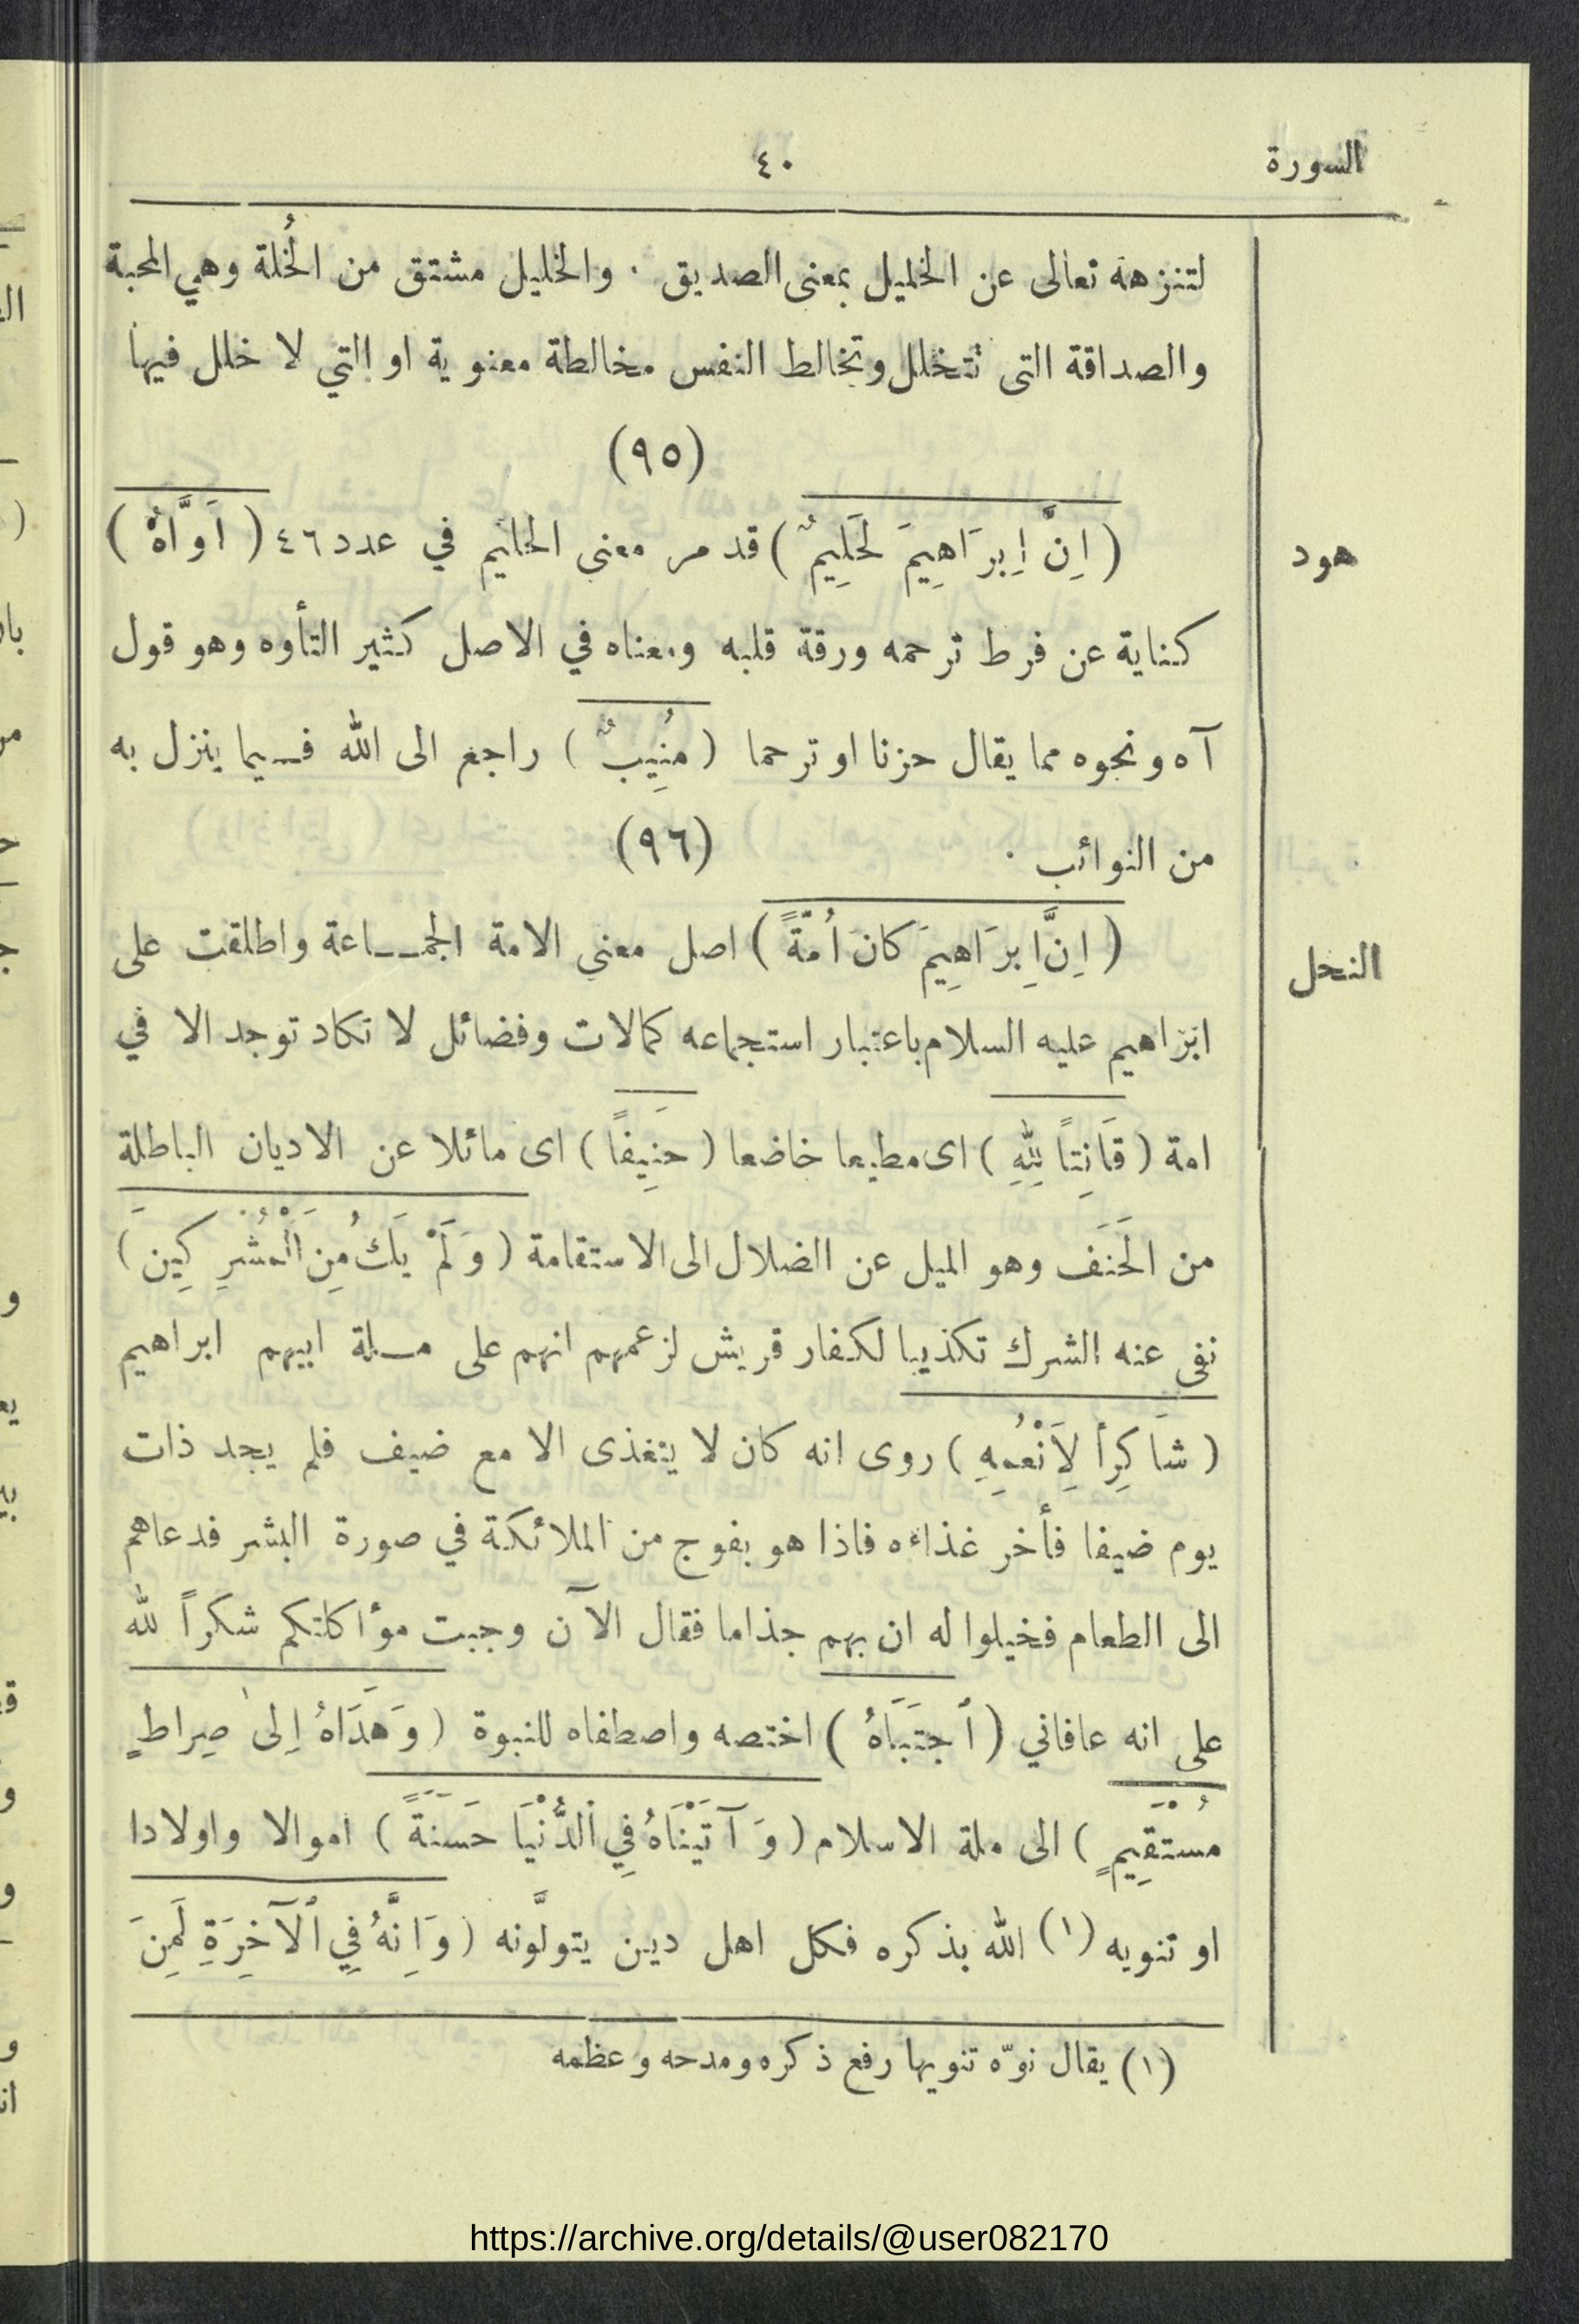 السورة
٤٠
لتنزهه تعالى عن الخليل بمعنى الصديق . والخليل مشتق من الخُلة وهي المحبة
والصداقة التى تتخلل وتخالط النفس مخالطة معنوية او التي لا خلل فيها
(٩٥)
هود
(اِنَّ اِبرَاهِيمَ لَحَلِيمٌ) قد مر معنى الحليم في عدد ٤٦ (اَوَّاهٌ)
كناية عن فرط ترحمه ورقة قلبه ومعناه في الاصل كثير التأوه وهو قول
آه ونحوه مما يقال حزنا او ترحما (مُنِيبٌ) راجع الى الله فيما ينزل به
من النوائب .
(٩٦)
النحل
(اِنَّ اِبرَاهِيمَ كانَ اُمَّةً) اصل معنى الامة الجمـاعة واطلقت على
ابراهيم عليه السلام باعتبار استجماعه كمالات وفضائل لا تكاد توجد الا في
امة (قَانِتاً لِلهِ) اى مطيعا خاضعا (حَنِيفاً) اى مائلا عن الاديان الباطلة
من الحَنَف وهو الميل عن الضلال الى الاستقامة (وَلَمْ يَكُ مِنَ اَلْمُشْرِكِينَ)
نفى عنه الشرك تكذيبا لكفار قريش لزعمهم انهم على مـلة ابيهم ابراهيم
(شَاكِراً لِاَنْعُمِهِ) روى انه كان لا يتغذى الا مع ضيف فلم يجد ذات
يوم ضيفا فأخر غذاءه فاذا هو بفوج من الملائكة في صورة البشر فدعاهم
الى الطعام فخيلوا له ان بهم جذاما فقال الآن وجبت مؤاكلتكم شكراً لله
على انه عافاني (ٱجتَبَاهُ) اختصه واصطفاه للنبوة (وَهَدَاهُ اِلىٰ صِراطٍ
مُسْتَقِيمٍ) الى ملة الاسلام (وَآتَيْنَاهُ فِي ٱلدُّنْيَا حَسَنَةً) اموالا واولادا
او تنويه (١) الله بذكره فكل اهل دين يتولَّونه (وَاِنَّهُ فِي ٱلآخِرَةِ لَمِنَ
(١) يقال نوّه تنويها رفع ذكره ومدحه وعظمه
https://archive.org/details/@user082170